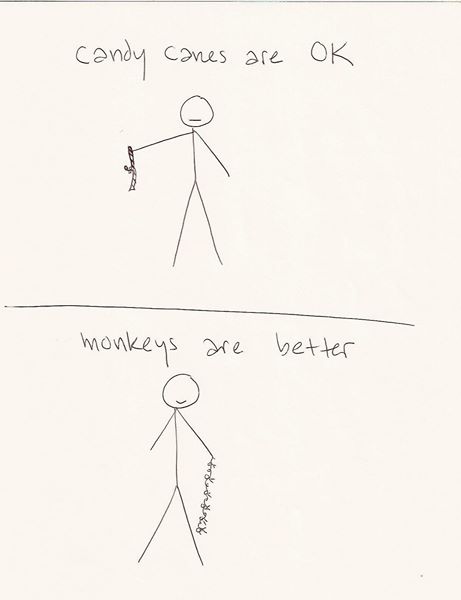 candy canes are OK
monkeys are better